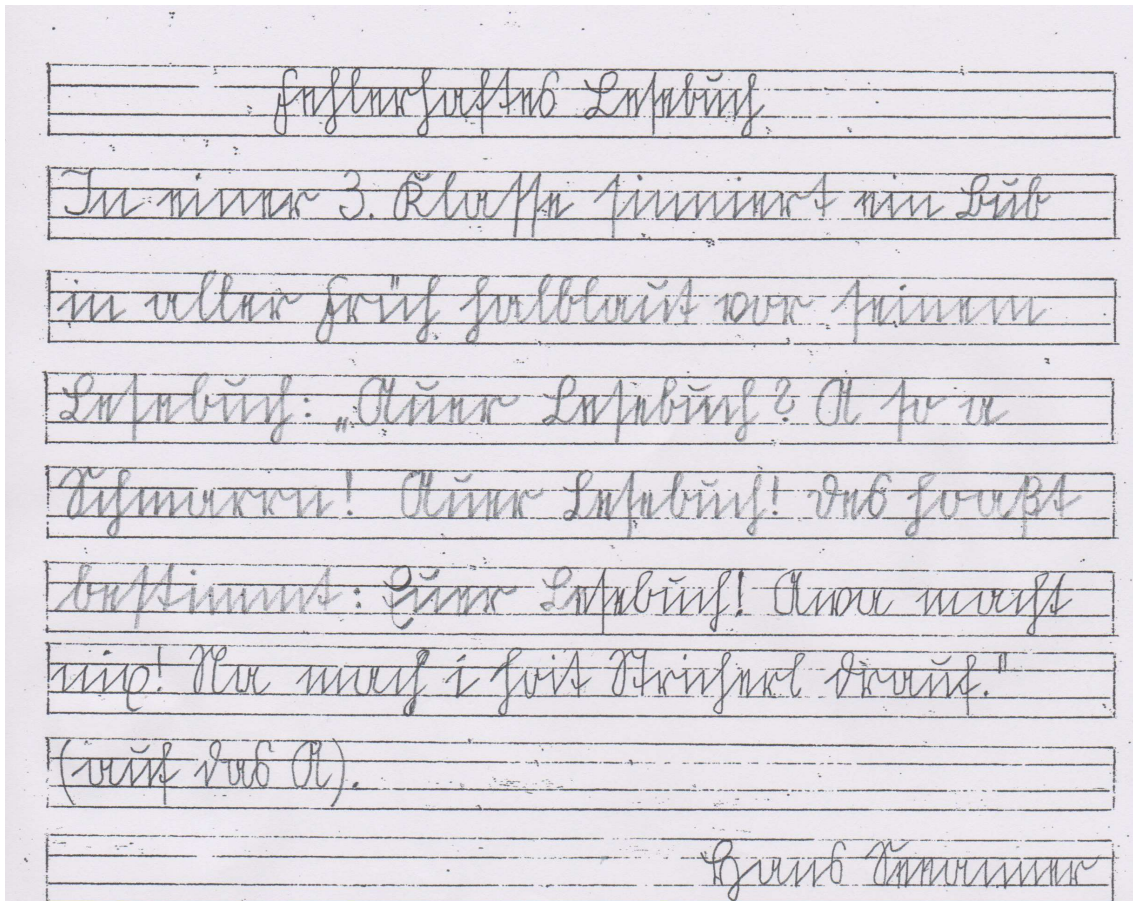 Fehlerhaftes Lesebuch
In einer 3. Klasse sinniert ein Bub
in aller Früh halblaut vor seinem
Lesebuch: „Auer Lesebuch? A so a
Schmarrn! Auer Lesebuch! Des hoaßt
bestimmt: Euer Lesebuch! Awa macht
nix! Na mach i hoit Stricherl drauf."
(auf das A).
Hans Seeanner